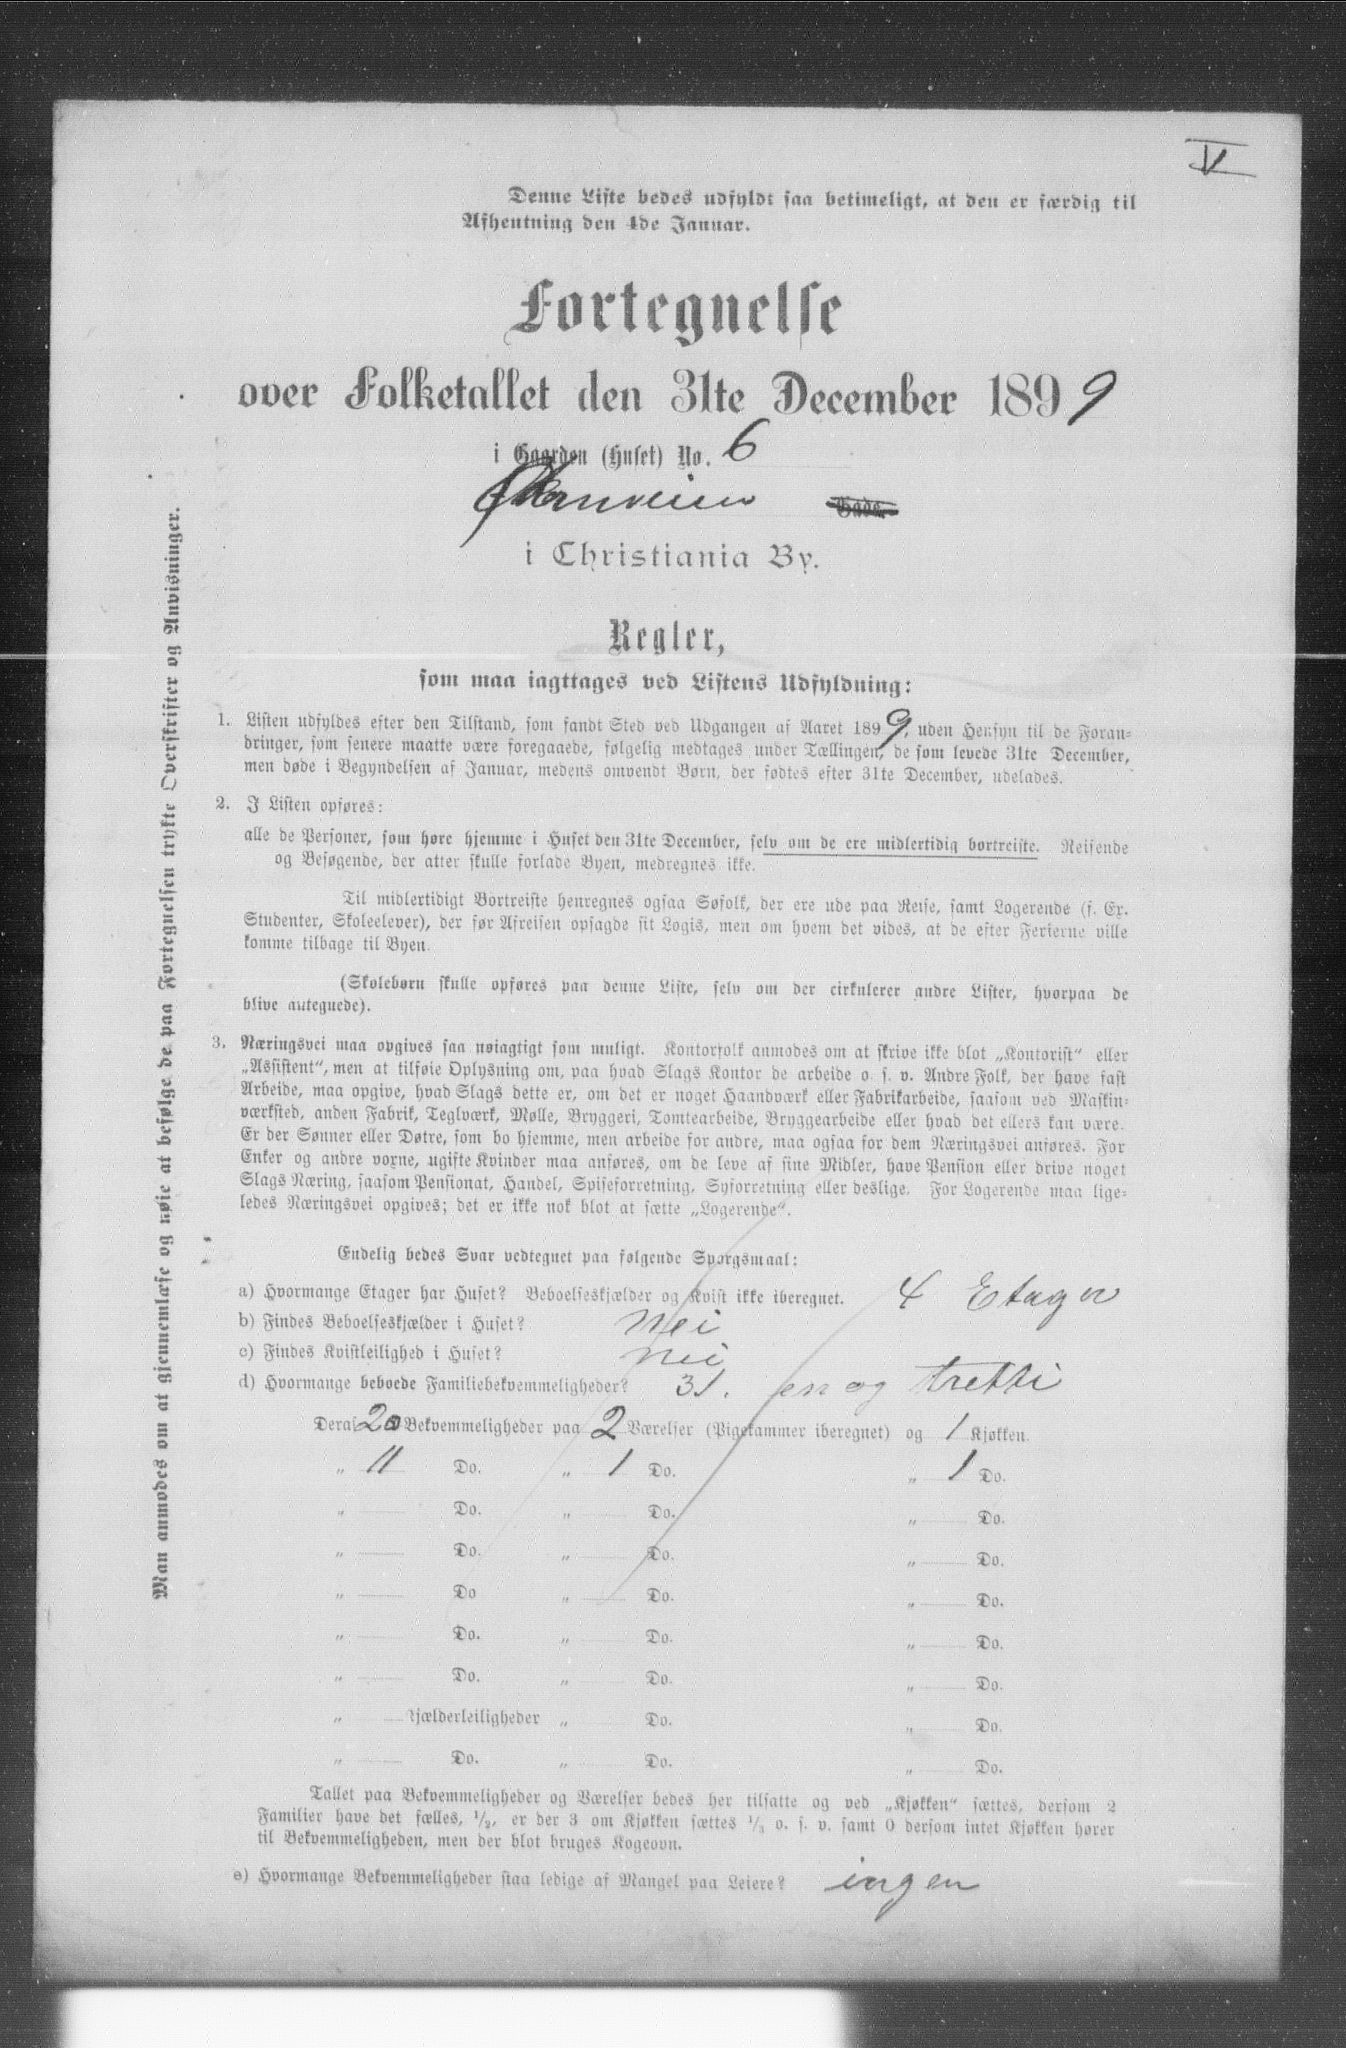 V
Denne Liste bedes udfyldt saa betimeligt, at den er færdig til
Afhentning den 4de Januar.
Fortegnelse
over Folketallet den 31te December 1899
i Gaarden (Huset) No. 6
Gade.
i Christiania By.
Regler,
som maa iagttages ved Listens Udfyldning:
1. Listen udfyldes efter den Tilstand, som fandt Sted ved Udgangen af Aaret 1899, uden Hensyn til de Foran-
dringer, som senere maatte være foregaaede, følgelig medtages under Tællingen, de som levede 31te December,
men døde i Begyndelsen af Januar, medens omvendt Børn, der fødtes efter 31te December, udelades.
2. I Listen opføres:
alle de Personer, som høre hjemme i Huset den 31te December, selv om de ere midlertidig bortreiste. Reisende
og Besøgende, der atter skulle forlade Byen, medregnes ikke.
Til midlertidigt Bortreiste henregnes ogsaa Søfolk, der ere ude paa Reise, samt Logerende (f. Ex.
Studenter, Skoleelever), der før Afreisen opsagde sit Logis, men om hvem det vides, at de efter Ferierne ville
komme tilbage til Byen.
(Skolebørn skulle opføres paa denne Liste, selv om der cirkulerer andre Lister, hvorpaa de
blive antegnede).
3. Næringsvei maa opgives saa nøiagtigt som muligt. Kontorfolk anmodes om at skrive ikke blot „Kontorist“ eller
„Assistent“, men at tilføie Oplysning om, paa hvad Slags Kontor de arbeide o. s. v. Andre Folk, der have fast
Arbeide, maa opgive, hvad Slags dette er, om det er noget Haandværk eller Fabrikarbeide, saasom ved Maskin-
værksted, anden Fabrik, Teglværk, Mølle, Bryggeri, Tomtearbeide, Bryggearbeide eller hvad det ellers kan være.
Er der Sønner eller Døtre, som bo hjemme, men arbeide for andre, maa ogsaa for dem Næringsvei anføres. For
Enker og andre voxne, ugifte Kvinder maa anføres, om de leve af sine Midler, have Pension eller drive noget
Slags Næring, saasom Pensionat, Handel, Spiseforretning, Syforretning eller deslige. For Logerende maa lige-
ledes Næringsvei opgives; det er ikke nok blot at sætte „Logerende“.
Endelig bedes Svar vedtegnet paa følgende Spørgsmaal:
a) Hvormange Etager har Huset? Beboelseskjælder og Kvist ikke iberegnet. 4 Etager
b) Findes Beboelseskjælder i Huset? Nei
c) Findes Kvistleilighed i Huset? nei
d) Hvormange beboede Familiebekvemmeligheder? 31. en og tretti
Deraf 20 Bekvemmeligheder paa 2 Værelser (Pigekammer iberegnet) og 1 Kjøkken.
„ 11 Do. „ 1 Do. „ 1 Do.
„ Do. „ Do. „ Do.
„ Do. „ Do. „ Do.
„ Do „ Do. „ Do.
„ Do. „ Do. „ Do.
„ Do. „ Do. „ Do.
„ Kjælderleiligheder „ Do. „ Do.
„ Do. „ Do. „ Do.
Tallet paa Bekvemmeligheder og Værelser bedes her tilsatte og ved „Kjøkken“ sættes, dersom 2
Familier have det fælles, 1/2, er der 3 om Kjøkken sættes 1/3 o. s. v. samt 0 dersom intet Kjøkken hører
til Bekvemmeligheden, men der blot bruges Kogeovn.
e) Hvormange Bekvemmeligheder staa ledige af Mangel paa Leiere? ingen
Man anmodes om at gjennemlæse og nøie at befølge de paa Fortegnelsen trykte Overskrifter og Anvisninger.